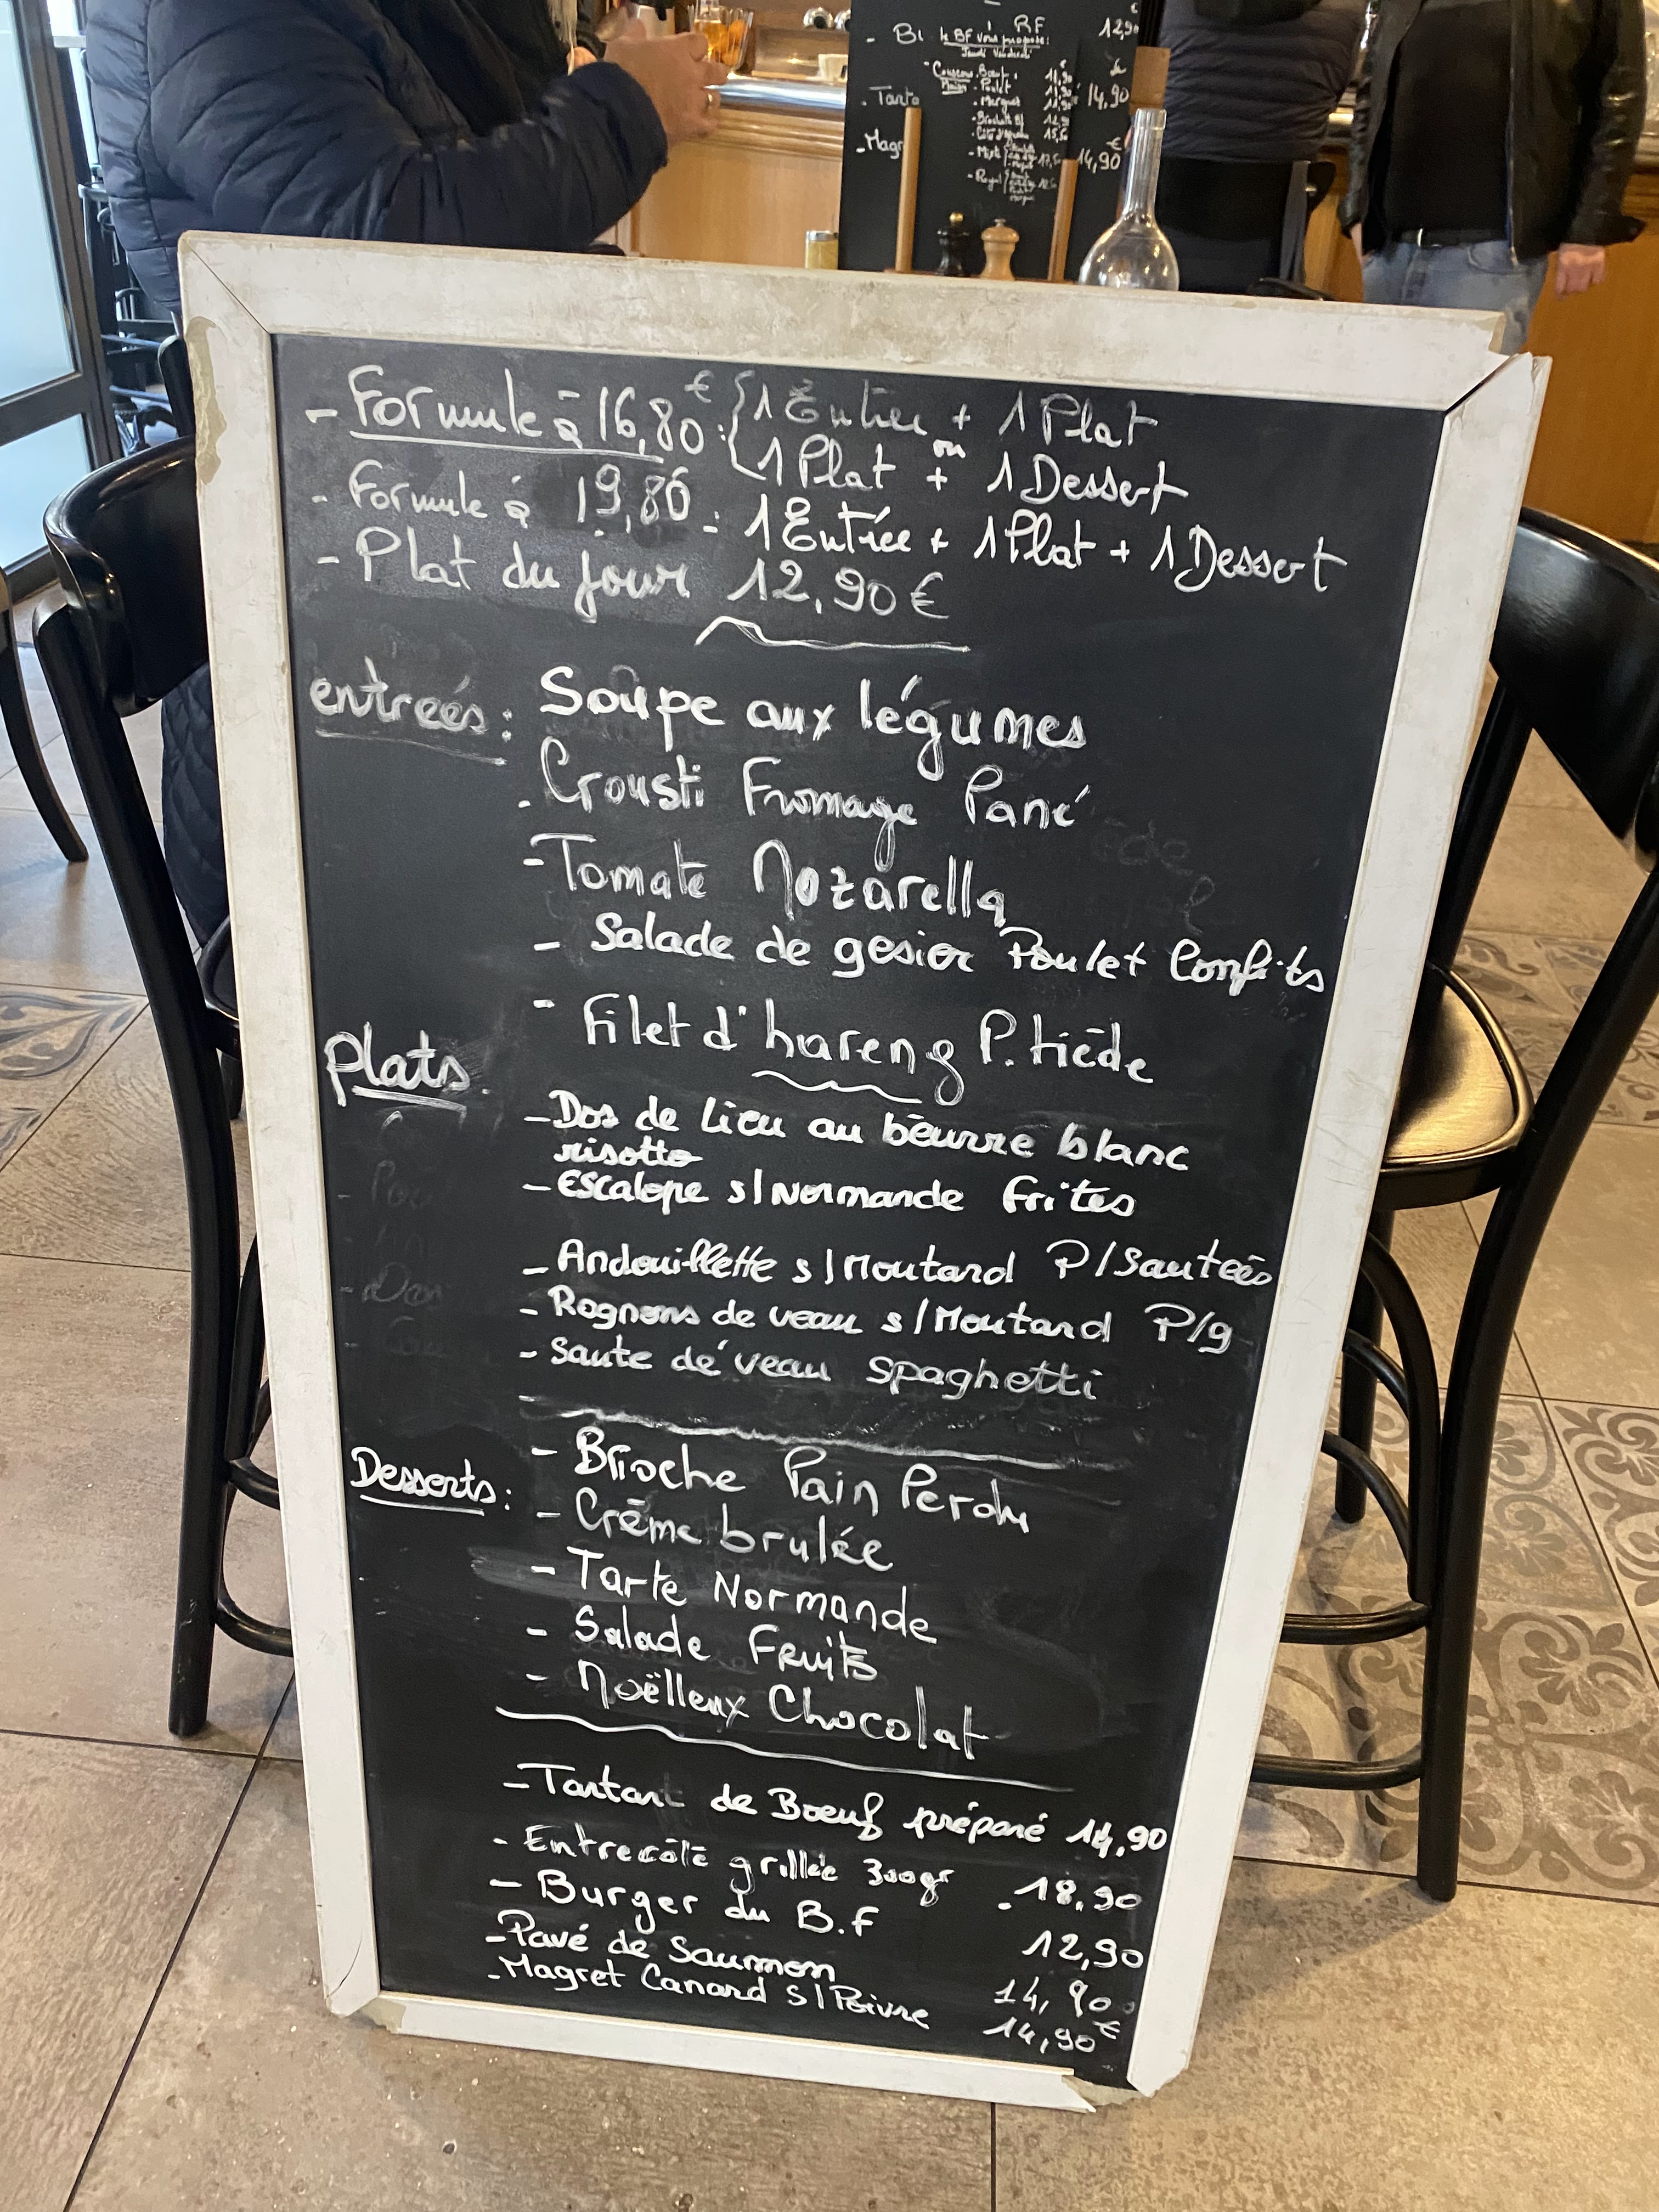 - Bl
RF
12,90
le BF vous propose:
Jeudi Vendredi
Couscous Bœuf 11,90
Maison - Poulet 11,90
- Merguez 11,90
- Tarta
14,90
- Brochette Bf 12,90
- Magr
- Mixte
14,90 €
- Royal
- Formule à 16,80 € : { 1 Entrée + 1 Plat
ou
1 Plat + 1 Dessert
- Formule à 19,80 : 1 Entrée + 1 Plat + 1 Dessert
- Plat du jour 12,90 €
entreés : Soupe aux légumes
- Crousti Fromage Pané
- Tomate Mozarella
- Salade de gesier Poulet Confits
- Filet d'hareng P. tiède
Plats.
- Dos de Lieu au beurre blanc
risotto
- Escalope s/Normande frites
- Andouillette s/Moutard P/Sauteés
- Rognons de veau s/Moutard P/g
- Saute de veau spaghetti
-
Desserts : - Brioche Pain Perdu
- Crême brulée
- Tarte Normande
- Salade Fruits
- Moëlleux Chocolat
- Tartart de Boeuf préparé 14,90
- Entrecôte grillée 300gr 18,90
- Burger du B.F 12,90
- Pavé de Saumon 14,90
- Magret Canard S/Poivre 14,90 €